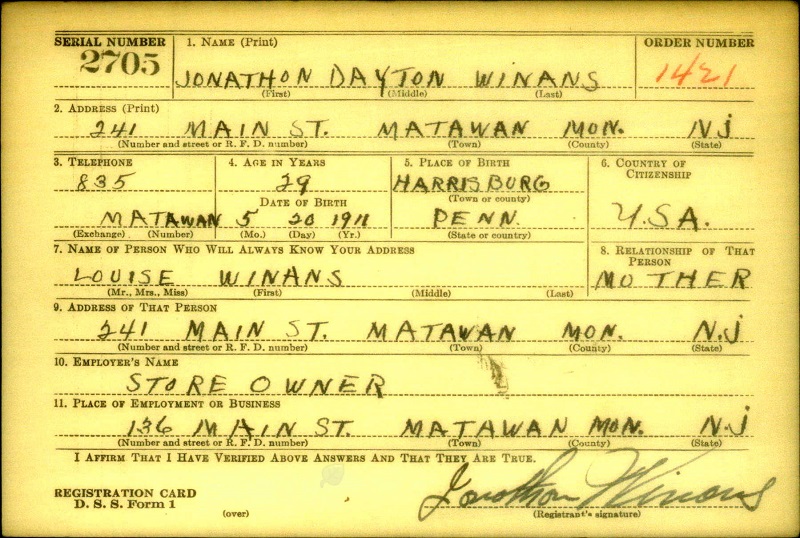 SERIAL NUMBER 1. NAME (Print) ORDER NUMBER
2705 JONATHON DAYTON WINANS 1421
(First) (Middle) (Last)
2. ADDRESS (Print)
241 MAIN ST. MATAWAN MON. NJ
(Number and street or R. F. D. number) (Town) (County) (State)
3. TELEPHONE 4. AGE IN YEARS 5. PLACE OF BIRTH 6. COUNTRY OF CITIZENSHIP
835 29 HARRISBURG
DATE OF BIRTH (Town or county)
MATAWAN 5 20 1911 PENN. U.S.A.
(Exchange) (Number) (Mo.) (Day) (Yr.) (State or country)
7. NAME OF PERSON WHO WILL ALWAYS KNOW YOUR ADDRESS 8. RELATIONSHIP OF THAT PERSON
LOUISE WINANS MOTHER
(Mr., Mrs., Miss) (First) (Middle) (Last)
9. ADDRESS OF THAT PERSON
241 MAIN ST. MATAWAN MON. N.J
(Number and street or R. F. D. number) (Town) (County) (State)
10. EMPLOYER'S NAME
STORE OWNER
11. PLACE OF EMPLOYMENT OR BUSINESS
136 MAIN ST. MATAWAN MON. N.J
(Number and street or R. F. D. number) (Town) (County) (State)
I AFFIRM THAT I HAVE VERIFIED ABOVE ANSWERS AND THAT THEY ARE TRUE.
REGISTRATION CARD Jonathon Winans
D. S. S. Form 1 (over) (Registrant's signature)